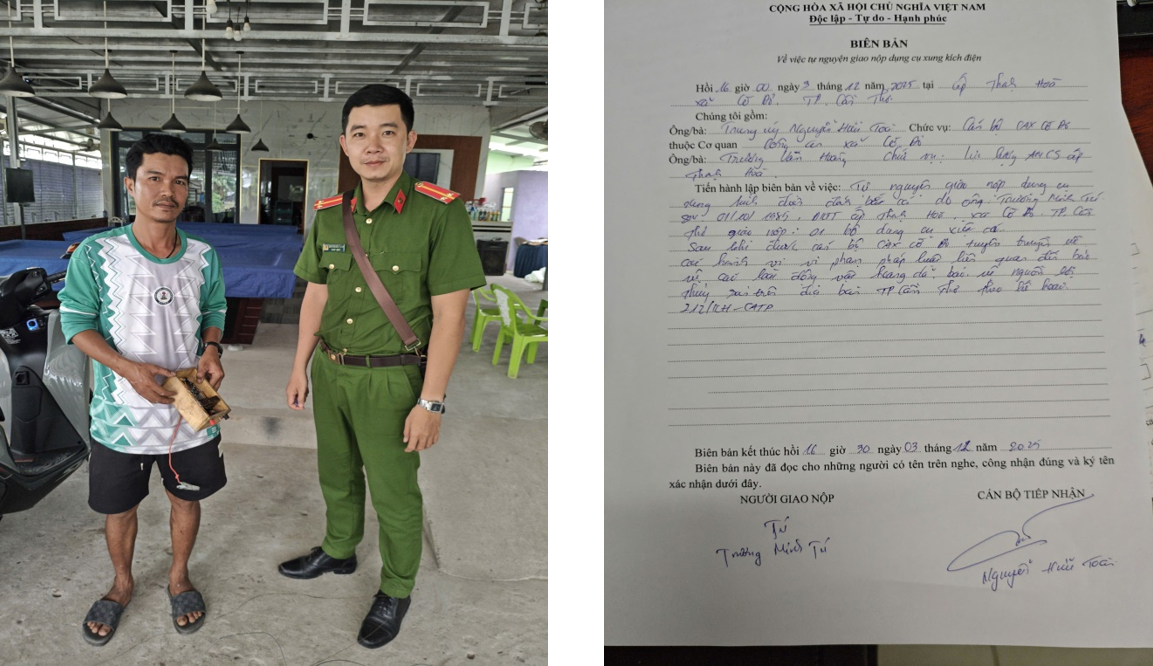 CỘNG HÒA XÃ HỘI CHỦ NGHĨA VIỆT NAM
Độc lập - Tự do - Hạnh phúc
BIÊN BẢN
Về việc tự nguyện giao nộp dụng cụ xung kích điện
Hồi 16 giờ 00 ngày 3 tháng 12 năm 2025 tại ấp Thạnh Hoà
xã Cờ Đỏ. TP Cần Thơ.
Chúng tôi gồm:
Ông/bà: Trung úy Nguyễn Hữu Toài Chức vụ: Cán bộ CAX Cờ Đỏ
thuộc Cơ quan Công an xã Cờ Đỏ
Ông/bà: Trương Văn Hoàng Chức vụ: Lực lượng ANCS ấp
Thạnh Hoà.
Tiến hành lập biên bản về việc: Tự nguyện giao nộp dụng cụ
dùng kích điện đánh bắt cá do ông Trương Minh Tú
sn: 01/01/1985. ĐKTT ấp Thạnh Hoà, xã Cờ Đỏ. TP Cần
Thơ giao nộp: 01 bộ dụng cụ xiếc cá.
Sau khi được cán bộ CAX Cờ Đỏ tuyên truyền về
các hành vi vi phạm pháp luật liên quan đến bảo
vệ các loài động vật hoang dã bảo vệ nguồn lợi
thủy sản trên địa bàn TP Cần Thơ theo kế hoạch
212/KH-CATP
Biên bản kết thúc hồi 16 giờ 30 ngày 03 tháng 12 năm 2025
Biên bản này đã đọc cho những người có tên trên nghe, công nhận đúng và ký tên
xác nhận dưới đây.
NGƯỜI GIAO NỘP
CÁN BỘ TIẾP NHẬN
Tú
Trương Minh Tú
Nguyễn Hữu Toài